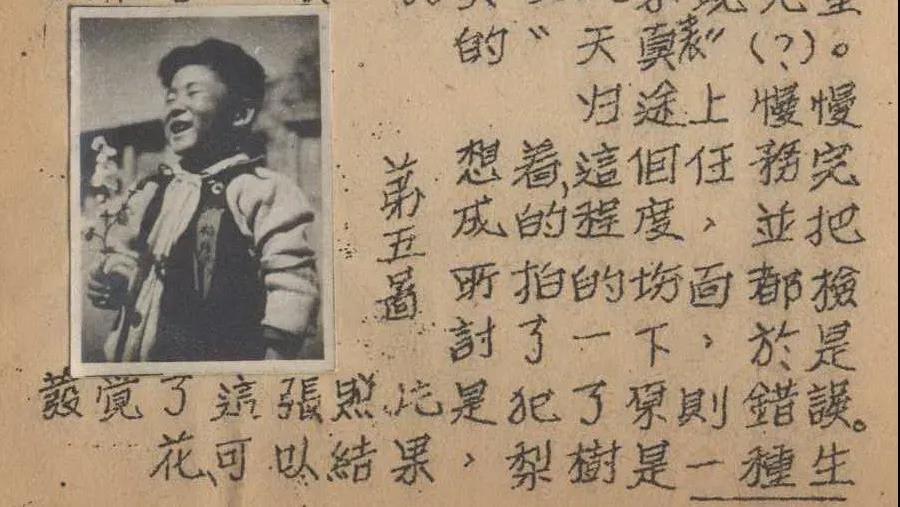 的“天真”(?)。
归途上慢慢
想着,這個任務完
成的程度,並把
所拍的坊面都檢
討了一下,於是
發覚了這張照片是犯了原則錯誤。
花可以結果,梨樹是一種生
苐五啚